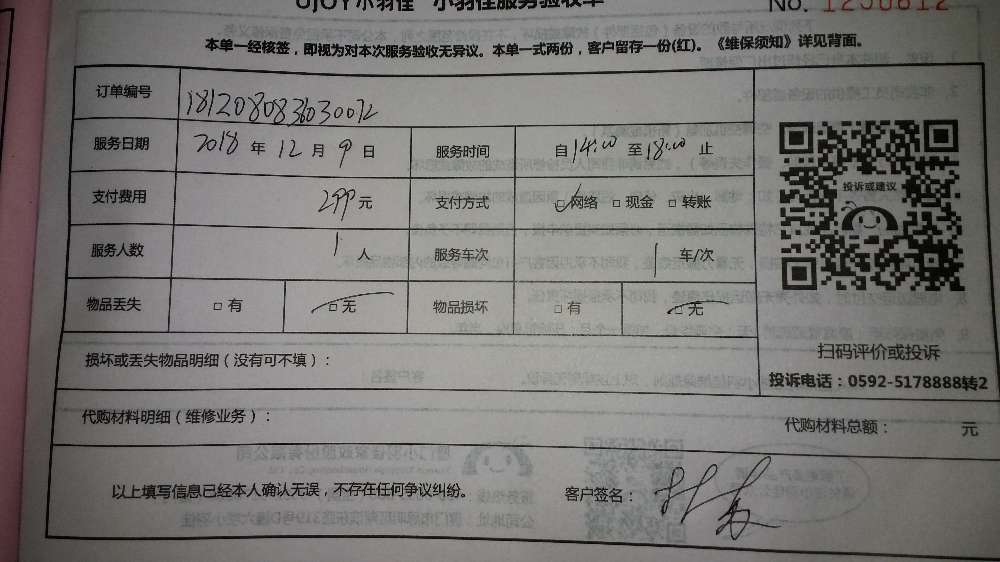 UJOY小羽佳 小羽佳服务验收单 No. 1250612
本单一经核签，即视为对本次服务验收无异议。本单一式两份，客户留存一份(红)。《维保须知》详见背面。
订单编号
服务日期 2018 年 12 月 9 日 服务时间 自 14:00 至 18:00 止
投诉或建议
支付费用 299 元 支付方式 ☑网络 □现金 □转账
服务人数 1 人 服务车次 1 车/次
物品丢失 □有 ☑无 物品损坏 □有 ☑无
扫码评价或投诉
损坏或丢失物品明细（没有可不填）：
投诉电话：0592-5178888转2
代购材料明细（维修业务）： 代购材料总额： 元
以上填写信息已经本人确认无误，不存在任何争议纠纷。 客户签名：